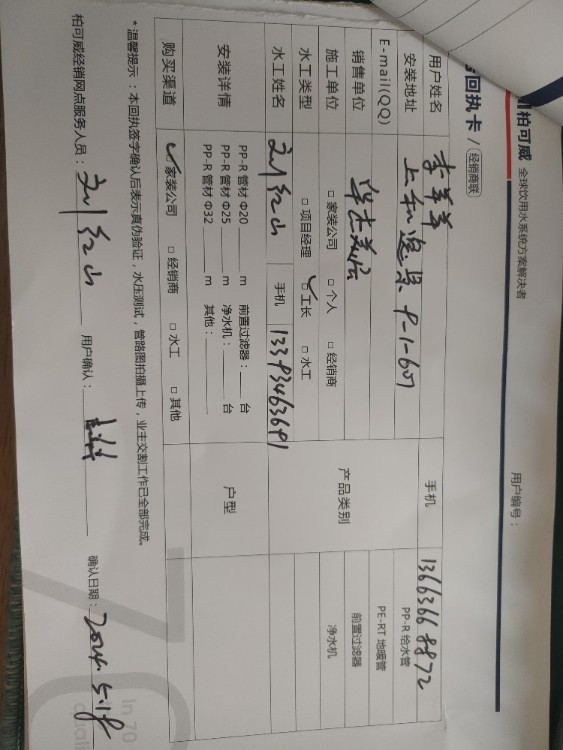 柏可威 全球饮用水系统方案解决者
回执卡 / 经销商联
用户编号：
用户姓名 李苹苹 手机 13663668872
安装地址 上和逸景 9-1-601
E-mail(QQ)
销售单位
施工单位 □ 家装公司 □ 个人 □ 经销商
水工类型 □ 项目经理 ✓□ 工长 □ 水工
产品类别 PP-R 给水管
PE-RT 地暖管
前置过滤器
净水机
水工姓名 刘红山 手机 13393463691
安装详情 PP-R 管材 Φ20 m 前置过滤器： 台
PP-R 管材 Φ25 m 净水机： 台
PP-R 管材 Φ32 m 其他：
户型
购买渠道 ✓ 家装公司 □ 经销商 □ 水工 □ 其他
*温馨提示：本回执签字确认后表示真伪验证，水压测试，管路图拍摄上传，业主交割工作已全部完成。
柏可威经销网点服务人员：刘红山 用户确认： 确认日期：2024.5.18
In 70